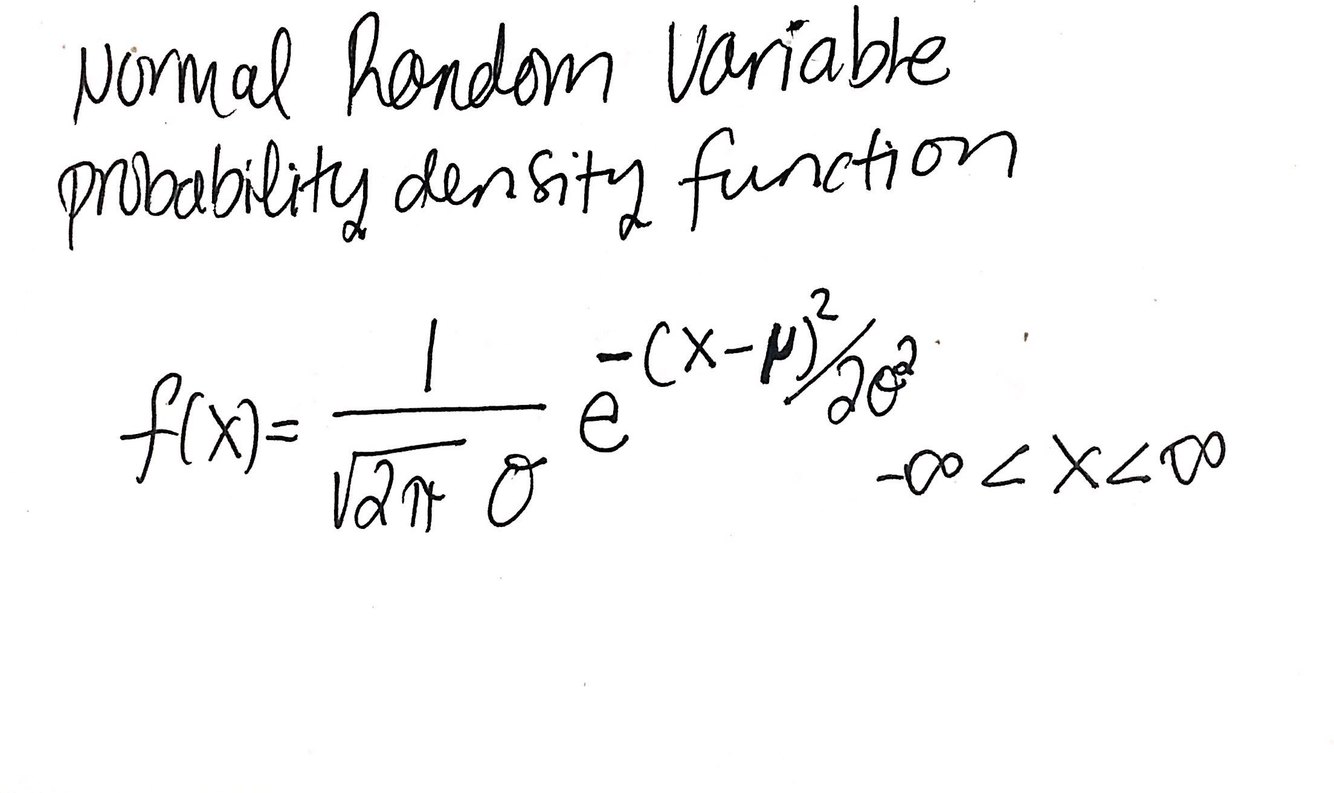 Normal Random Variable
probability density function
f(x) = 1/(√2π σ) e^(-(x-μ)²/2σ²)
-∞ < x < ∞